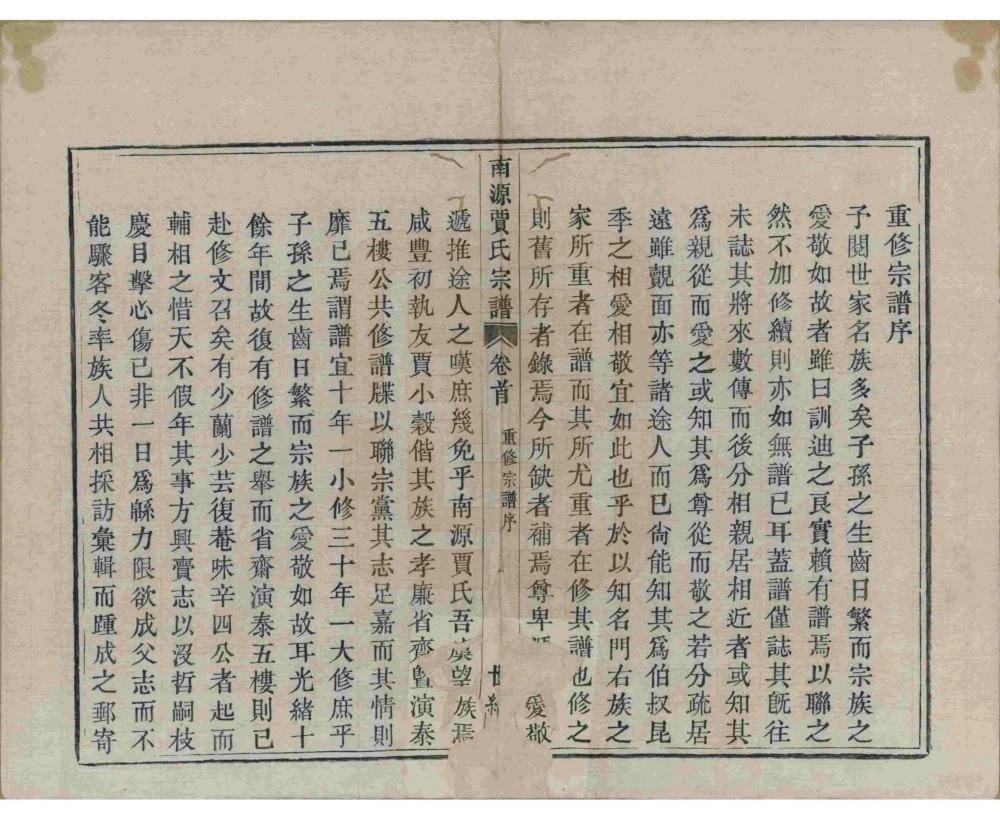 重修宗譜序
予閱世家名族多矣子孫之生齒日繁而宗族之
愛敬如故者雖曰訓迪之良實賴有譜焉以聯之
然不加修續則亦如無譜已耳蓋譜僅誌其旣往
未誌其將來數傳而後分相親居相近者或知其
爲親從而愛之或知其爲尊從而敬之若分疏居
遠雖觀面亦等諸途人而已尙能知其爲伯叔昆
季之相愛相敬宜如此也乎於以知名門右族之
家所重者在譜而其所尤重者在修其譜也修之
則舊所存者錄焉今所缺者補焉尊卑愛敬
南源賈氏宗譜 卷首 重修宗譜序
遞推途人之嘆庶幾免乎南源賈氏吾望族焉
咸豐初執友賈小穀偕其族之孝廉省齊曁演泰
五樓公共修譜牒以聯宗黨其志足嘉而其情則
靡已焉謂譜宜十年一小修三十年一大修庶乎
子孫之生齒日繁而宗族之愛敬如故耳光緒十
餘年間故復有修譜之舉而省齋演泰五樓則已
赴修文召矣有少蘭少芸復菴味辛四公者起而
輔相之惜天不假年其事方興賷志以沒哲嗣枝
慶目擊心傷已非一日爲緜力限欲成父志而不
能驟客冬率族人共相採訪彙輯而踵成之郵寄